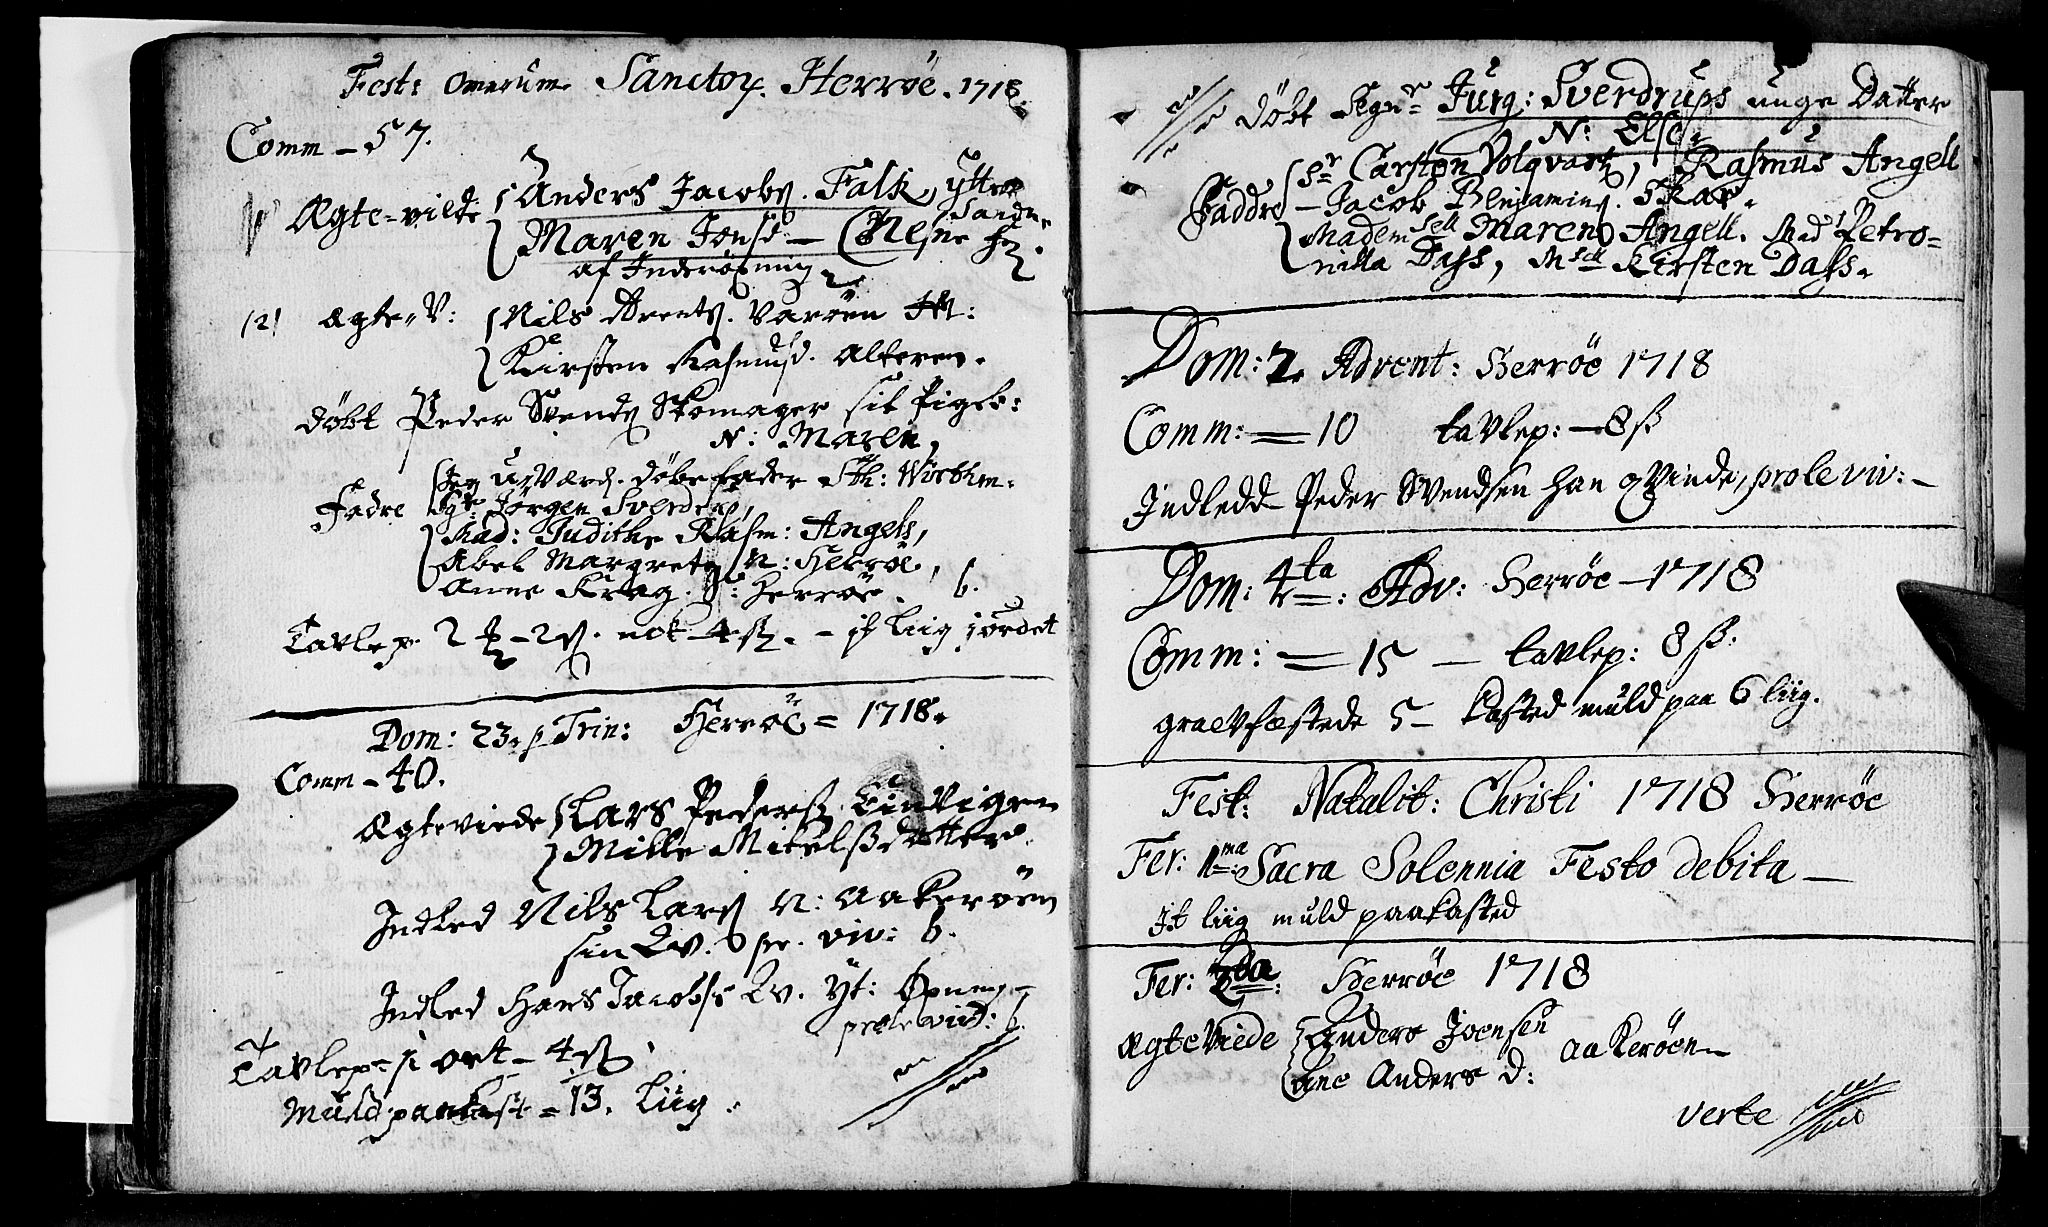 Fest: Omnium Sanctor. Herröe. 1718.
Comm – 57.
Ægte-vilde Anders Jacobs. Falk, yttre
Maren Jonsd – Nesne
af Inderö
(2) Ægte-V: Nils Arents. Varöen
Kirsten Rasmusd. Alteren.
Döbt Peder Svends Skomager sit Pigeb:
N: Maren,
Fadre Jeg uværd. döbefader
Sgr Jörgen Sverdrup,
Mad: Judithe Rasm: Angels,
Abel Margrete N: Herröe,
Anne Krag. S: Herröe. 6.
Tavlep. 2 – 2 nok 4 ß. – jt liig jordet
Dom: 23. p Trin: Herröe = 1718.
Comm – 40.
Ægteviede Lars Peders
Mille Mikelsdatter.
Indled Nils Lars N: Aakeröen
sin Qv. pr. viv: 6.
Indled Hans Jacobs Qv. Yt:
prole viv: 6.
Tavlep = 1 ort – 4 ß
Muld paakast = 13. Liig.
Döbt Sign Jurg: Sverdrups unge Datter
N: Else.
Sr Carsten Volqvartz, Rasmus Angell
Faddre – Jacob Benjamins. Skar.
Madem sell Maren Angell. Mad Petro=
nilla Dass, Msell Kirsten Dass.
Dom: 2. Advent: Herröe 1718
Comm: = 10 tavlep: – 8 ß
Indledd Peder Svendsen han qvinde, prole viv: –
Dom: 4ta: Adv: Herröe – 1718
Comm: = 15 – tavlep: 8 ß.
graevfæstede 5 – Kasted muld paa 6 liig.
Fest: Natalit: Christi 1718 Herröe
Fer: 1ma Sacra Solennia Festo debita –
jt liig muld paakasted
Fer: Herröe 1718
Ægteviede Anders Joensen
Ane Anders d: Aakeröen –
verte